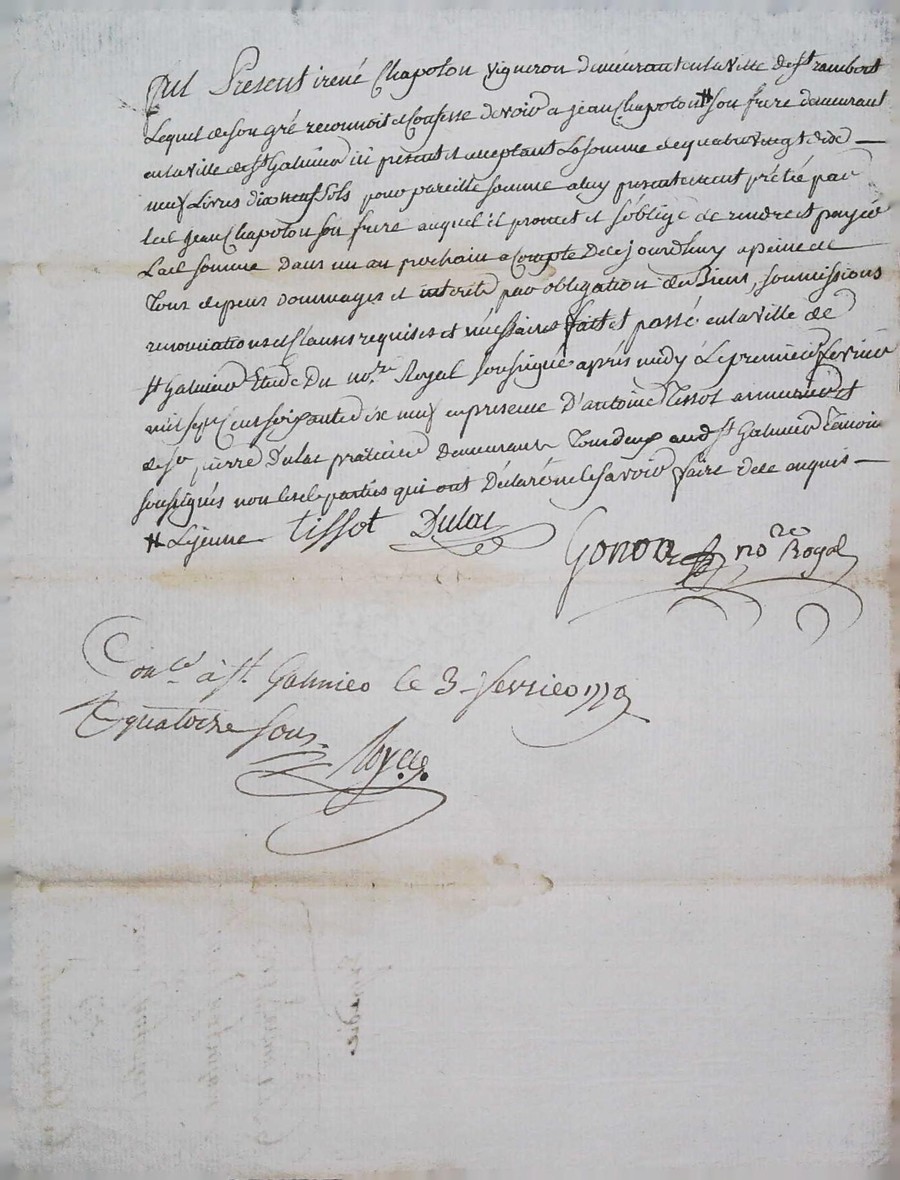 Fut Present irené Chapoton vigneron demeurant en la ville de st rambert
Lequel de son gré reconnoit et Confesse devoir a jean Chapoton # son frere demeurant
en la ville de st Galmier ici present et acceptant La somme de quatre vingt dix
neuf Livres dix neuf sols pour pareille somme a luy presentement prêtée par
led jean Chapoton son frere auquel il promet et s'oblige de rendre et payer
Lad somme dans un an prochain a Compte De ce jourdhuy a peine de
Tous depens dommages et interêts par obligation de Biens, soumissions
renonciations et Clauses requises et nécessaires fait et passé en la ville de
st Galmier Etude Du nore Royal soussigné après midy Le premier fevrier
mil sept Cent soixante dix neuf en presence D'antoine Tissot armurier et
de sr pierre Dulac praticien demeurants Tous deux aud st Galmier Temoins
soussignés non lesd parties qui ont Déclaré ne le savoir faire de ce enquis
# Le jeune Tissot Dulac
Gonon nore Royal
Conlé à st Galmier le 3 fevrier 1779
quatorze sous